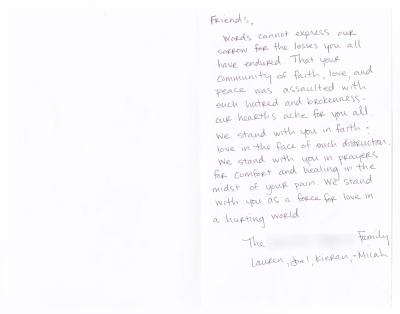 Friends,
Words cannot express our
sorrow for the losses you all
have endured. That your
community of faith, love, and
peace was assaulted with
such hatred and brokenness -
our hearths ache for you all.
We stand with you in faith &
love in the face of such distruction.
We stand with you in prayers
for comfort and healing in the
midst of your pain. We stand
with you as a force for love in
a hurting world
The Family
Lauren, Joel, Kieran, + Micah